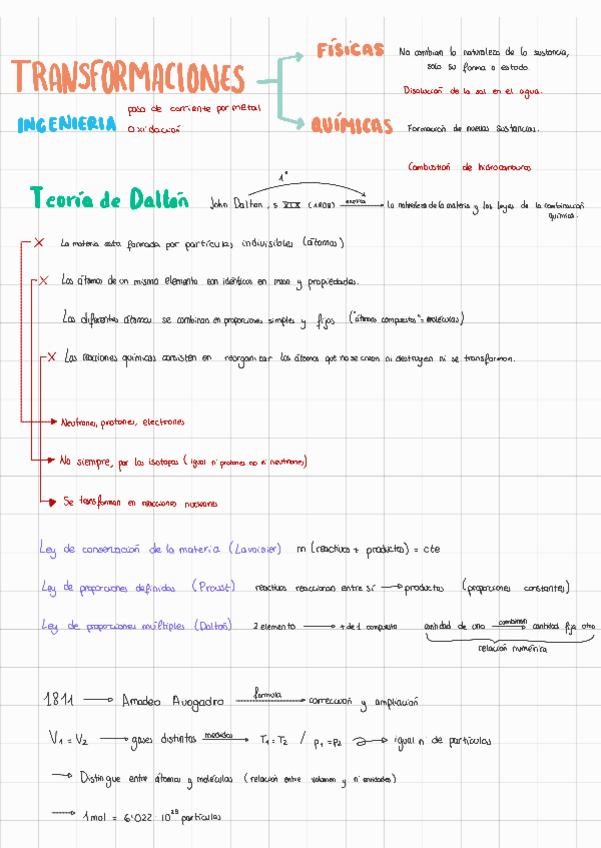 TRANSFORMACIONES
FÍSICAS
No cambian la naturaleza de la sustancia,
solo su forma o estado.
Disolución de la sal en el agua.
INGENIERIA
paso de corriente por metal
Oxidación
QUÍMICAS
Formación de nuevas sustancias.
Combustión de hidrocarburos
Teoría de Daltón
John Dalton, s XIX (1808)
1ª
la naturaleza de la materia y las leyes de la combinación
química.
X La materia esta formada por partículas indivisibles (átomos)
X Los átomos de un mismo elemento son idénticos en masa y propiedades.
Los diferentes átomos se combinan en proporciones simples y fijos ("átomos compuestos" = moléculas)
X Las reacciones químicas consisten en reorganizar los átomos que no se crean ni destruyen ni se transforman.
Neutrones, protones, electrones
No siempre, por los isotopos (igual nº protones no nº neutrones)
Se transforman en reacciones nucleares
Ley de conservación de la materia (Lavoisier) m (reactivos + productos) = cte
Ley de proporciones definidas (Proust) reactivos reaccionan entre sí → productos (proporciones constantes)
Ley de proporciones múltiples (Daltoñ) 2 elemento → + de 1 compuesto cantidad de uno combinan → cantidad fija otro
relación numérica
1811 → Amadeo Avogadro formula → corrección y ampliación
V₁ = V₂ → gases distintos medidos → T₁ = T₂ / p₁ = p₂ → igual nº de partículas
→ Distingue entre átomos y moléculas (relación entre volumen y nº unidades)
→ 1 mol = 6'022 · 10²³ partículas